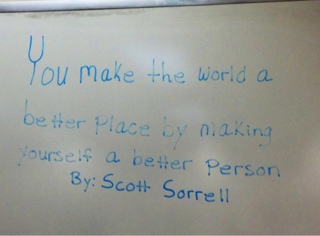 You make the world a
better Place by making
yourself a better Person
By: Scott Sorrell